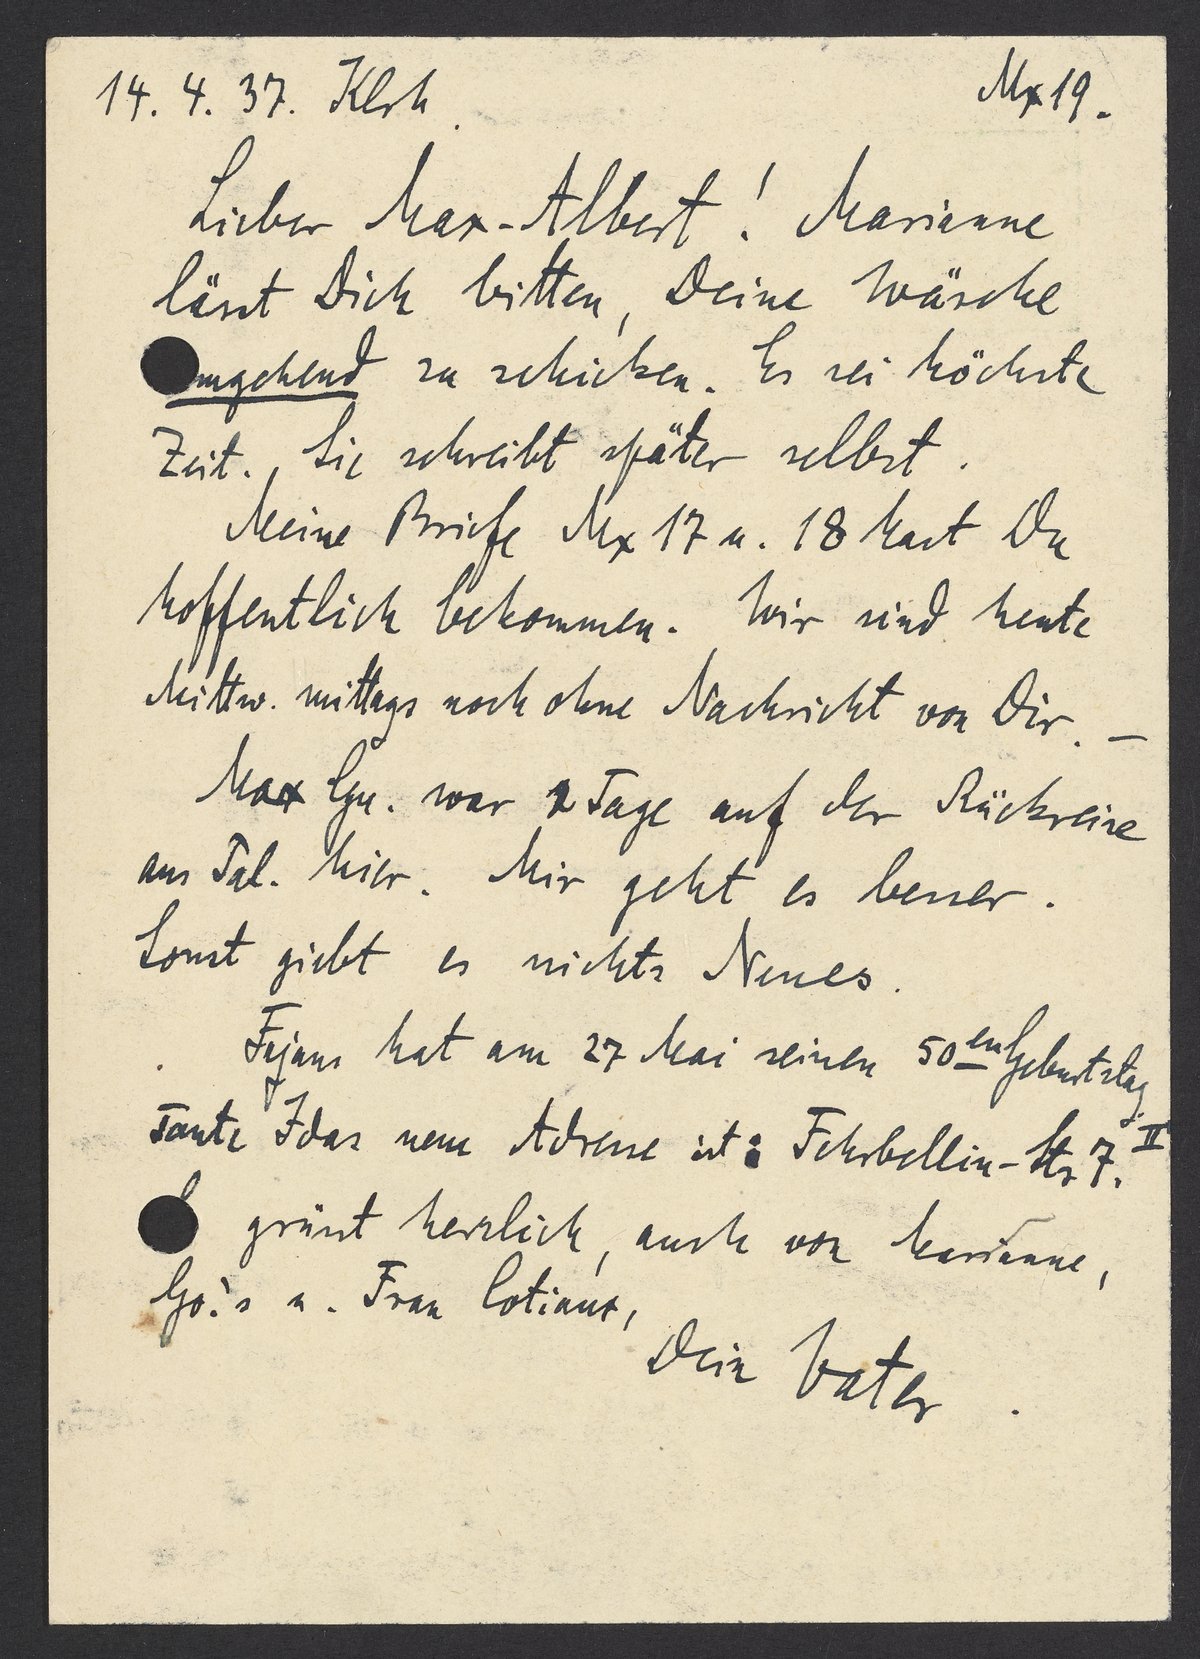 14. 4. 37. Klrh. Mx 19.
Lieber Max-Albert! Marianne
lässt Dich bitten, Deine Wäsche
umgehend zu schicken. Es sei höchste
Zeit. Sie schreibt später selbst.
Meine Briefe Mx 17 u. 18 hast Du
hoffentlich bekommen. Wir sind heute
Mittw. mittags noch ohne Nachricht von Dir. —
Max Gu. war 2 Tage auf der Rückreise
aus Tal. hier. Mir geht es besser.
Sonst giebt es nichts Neues.
Fajans hat am 27 Mai seinen 50en Geburtstag.
Tante Idas neue Adresse ist: Fehrbellin-Str 7. II
grüsst herzlich, auch von Marianne,
Go's u. Frau Cotiaux,
Dein Vater.